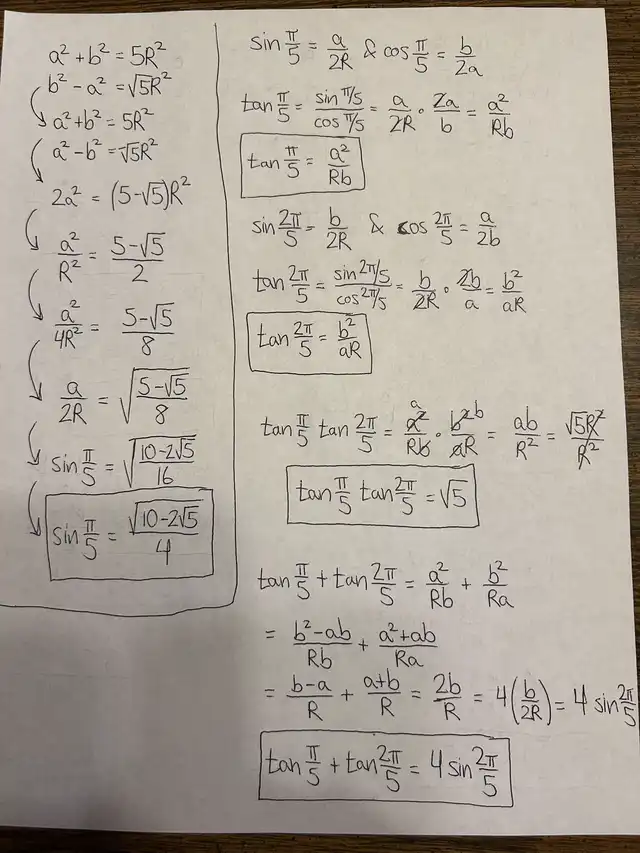 a² + b² = 5R²
b² − a² = √5R²
a² + b² = 5R²
a² − b² = √5R²
2a² = (5−√5)R²
a²/R² = (5−√5)/2
a²/4R² = (5−√5)/8
a/2R = √((5−√5)/8)
sin π/5 = √((10−2√5)/16)
sin π/5 = √(10−2√5)/4
sin π/5 = a/2R & cos π/5 = b/2a
tan π/5 = (sin π/5)/(cos π/5) = a/2R · 2a/b = a²/Rb
tan π/5 = a²/Rb
sin 2π/5 = b/2R & cos 2π/5 = a/2b
tan 2π/5 = (sin 2π/5)/(cos 2π/5) = b/2R · 2b/a = b²/aR
tan 2π/5 = b²/aR
tan π/5 tan 2π/5 = a² a/Rb · b² b/aR = ab/R² = √5R²/R²
tan π/5 tan 2π/5 = √5
tan π/5 + tan 2π/5 = a²/Rb + b²/Ra
= (b²−ab)/Rb + (a²+ab)/Ra
= (b−a)/R + (a+b)/R = 2b/R = 4(b/2R) = 4 sin 2π/5
tan π/5 + tan 2π/5 = 4 sin 2π/5